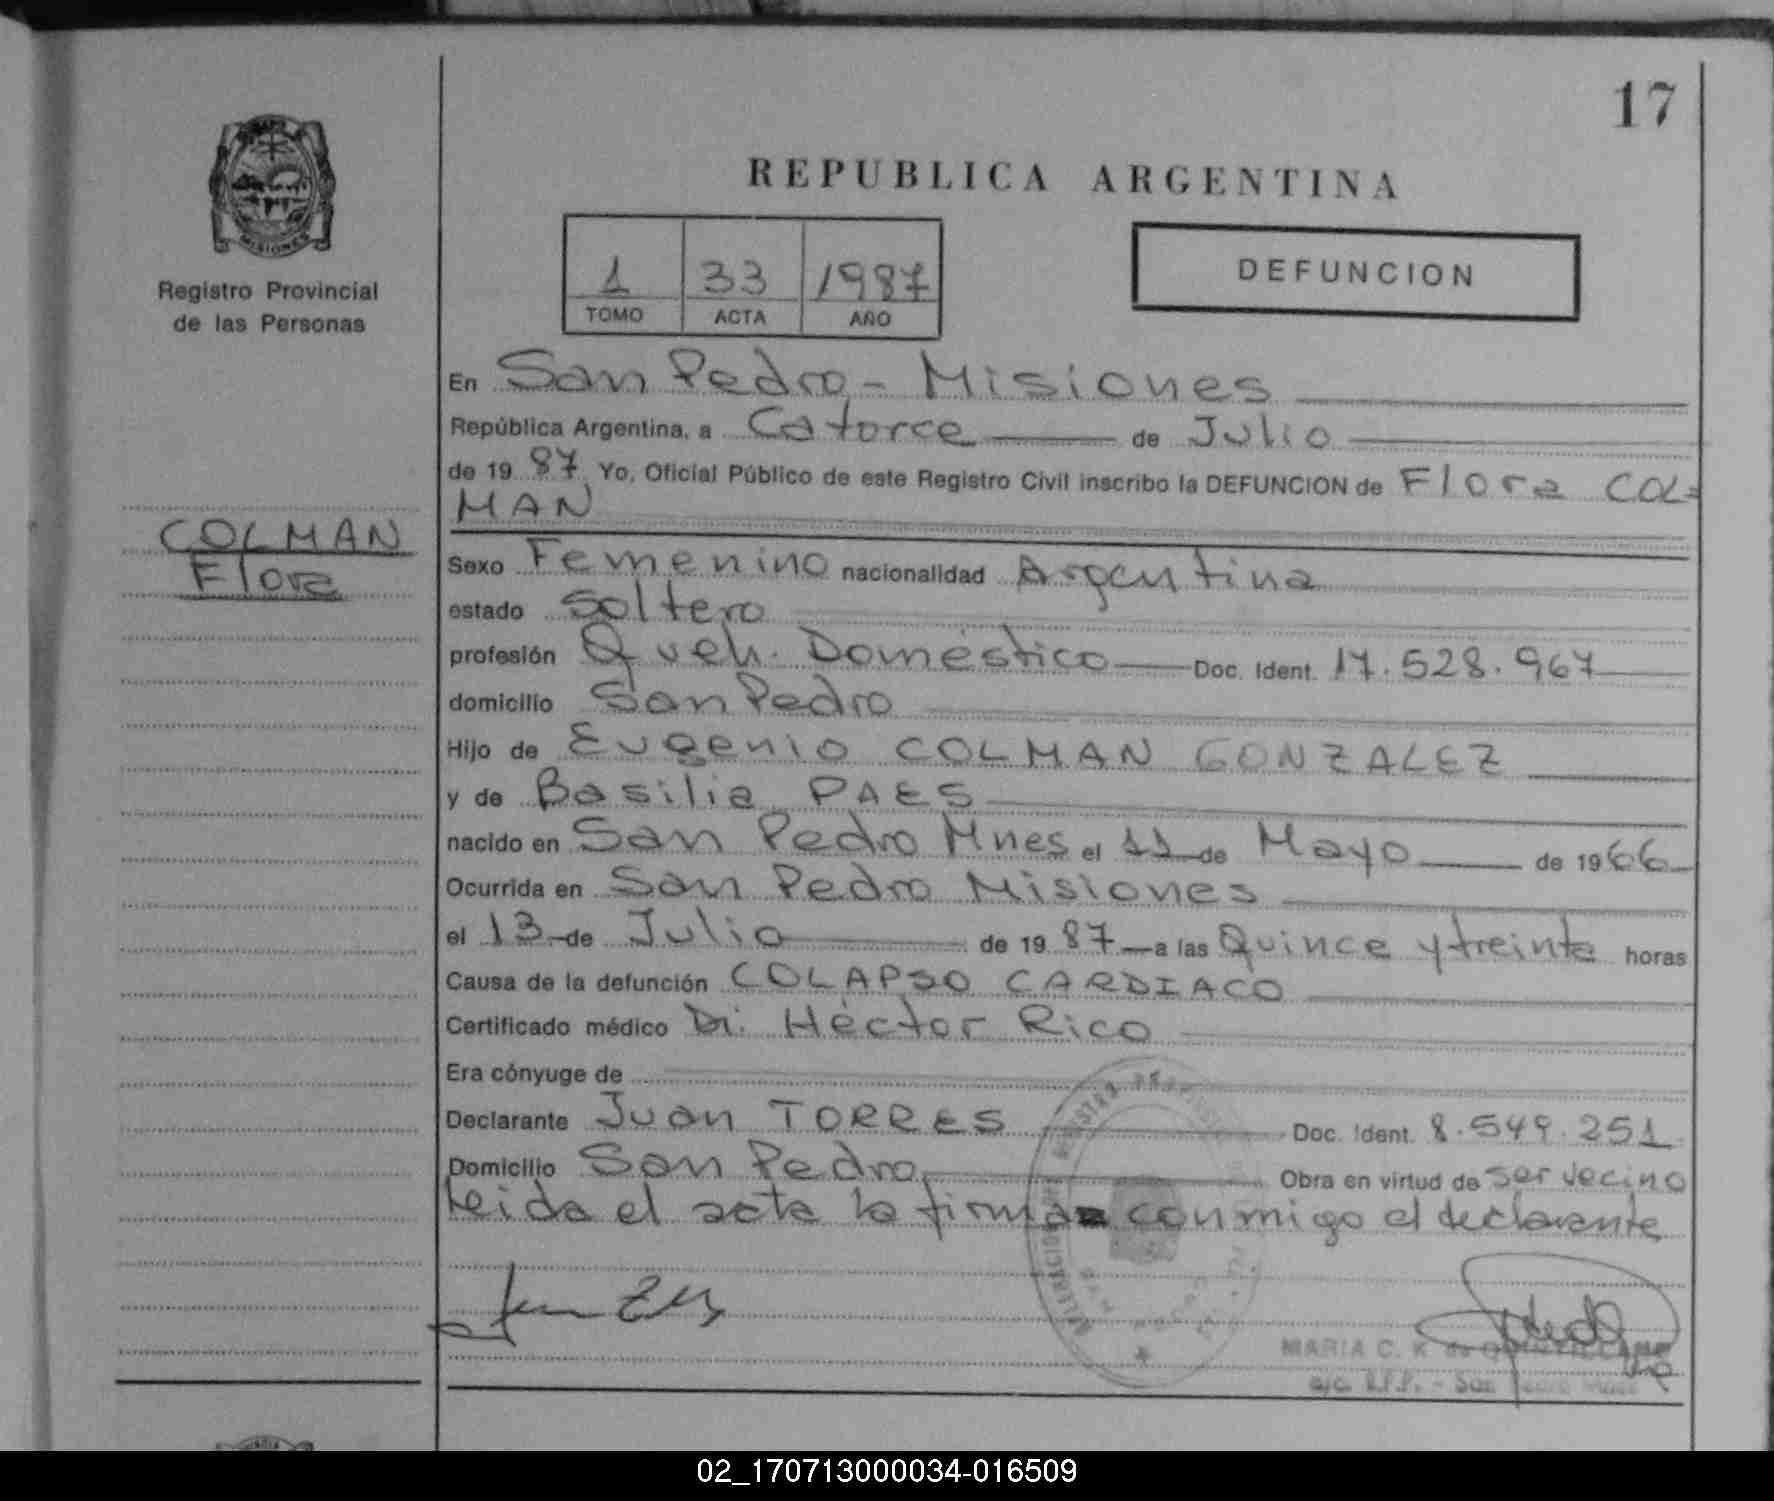 17
REPUBLICA ARGENTINA
MISIONES
Registro Provincial
de las Personas
1 33 1987
TOMO ACTA AÑO
DEFUNCION
COLMAN
Flora
En San Pedro - Misiones
República Argentina, a Catorce de Julio
de 19 87 Yo, Oficial Público de este Registro Civil inscribo la DEFUNCION de Flora COL=
MAN
Sexo Femenino nacionalidad Argentina
estado Soltero
profesión Queh. Doméstico Doc. Ident. 17.528.967
domicilio San Pedro
Hijo de Eugenio COLMAN GONZALEZ
y de Basilia PAES
nacido en San Pedro Mnes el 11 de Mayo de 1966
Ocurrida en San Pedro Misiones
el 13 de Julio de 19 87 a las Quince y treinta horas
Causa de la defunción COLAPSO CARDIACO
Certificado médico Dr. Héctor Rico
Era cónyuge de
Declarante Juan TORRES Doc. Ident. 8.549.251
Domicilio San Pedro Obra en virtud de ser vecino
Leida el acta la firma conmigo el declarante
MARIA C. K. de
R.P.P. - San Pedro Mnes
02_170713000034-016509